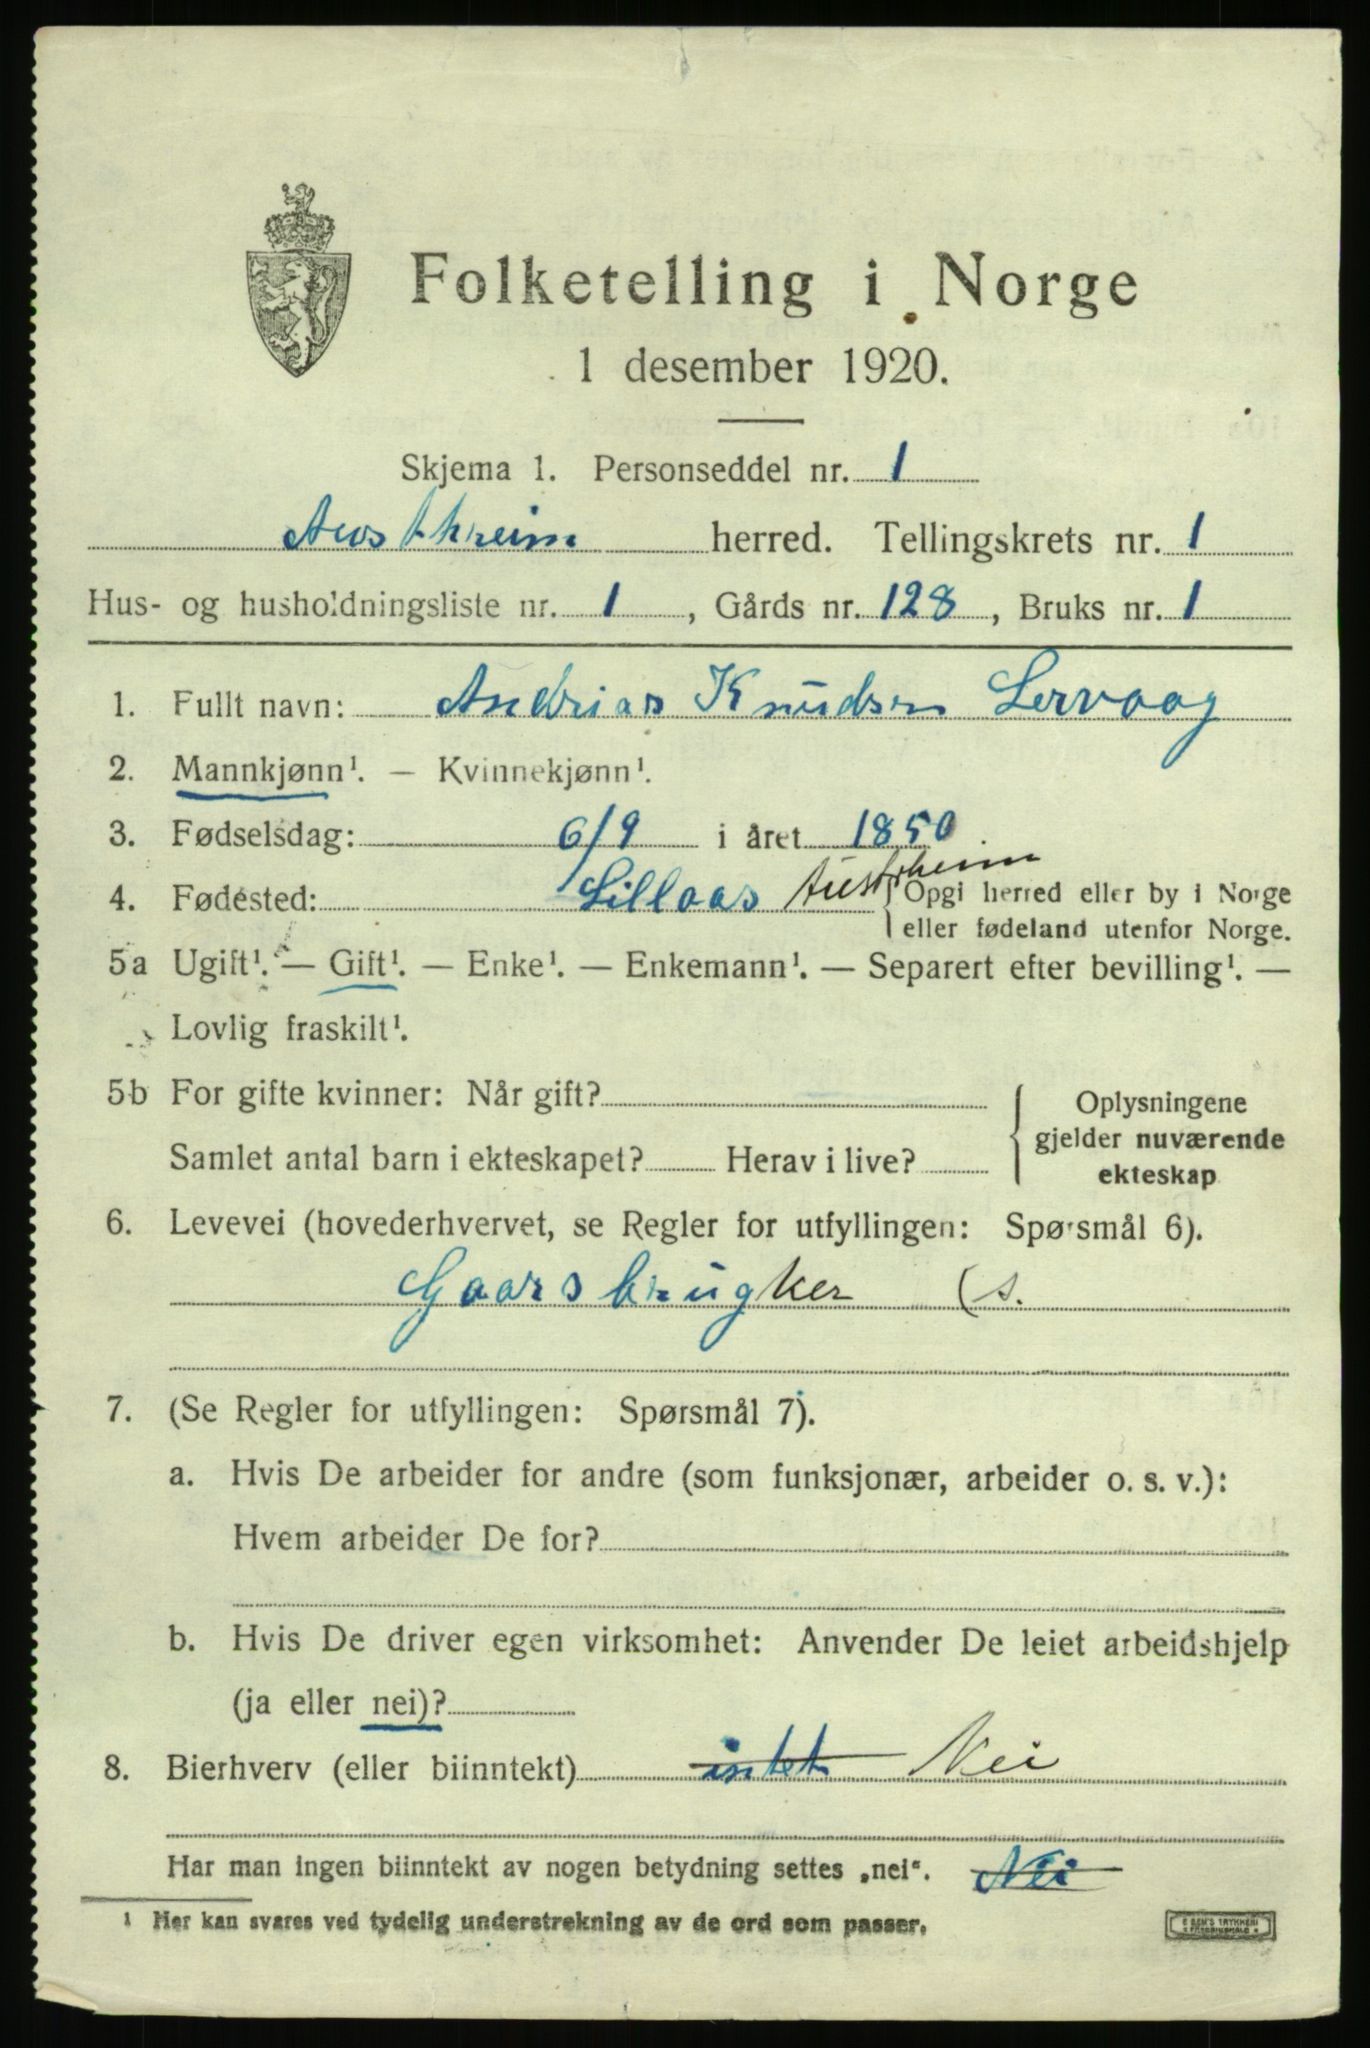 Folketelling i Norge
1 desember 1920.
Skjema 1. Personseddel nr. 1
Austrheim herred. Tellingskrets nr. 1
Hus- og husholdningsliste nr. 1, Gårds nr. 128, Bruks nr. 1
1. Fullt navn: Andrias Knudsen Lervaag
2. Mannkjønn¹. — Kvinnekjønn¹.
3. Fødselsdag: 6/9 i året 1850
4. Fødested: Lillaas Austrheim Opgi herred eller by i Norge
eller fødeland utenfor Norge.
5a Ugift¹. — Gift¹. — Enke¹. — Enkemann¹. — Separert efter bevilling¹. —
Lovlig fraskilt¹.
5b For gifte kvinner: Når gift?
Samlet antal barn i ekteskapet? Herav i live?
Oplysningene
gjelder nuværende
ekteskap
6. Levevei (hovederhvervet, se Regler for utfyllingen: Spørsmål 6).
Gaarsbrugker (s.
7. (Se Regler for utfyllingen: Spørsmål 7).
a. Hvis De arbeider for andre (som funksjonær, arbeider o. s. v.):
Hvem arbeider De for?
b. Hvis De driver egen virksomhet: Anvender De leiet arbeidshjelp
(ja eller nei)?
8. Bierhverv (eller biinntekt) intet Nei
Har man ingen biinntekt av nogen betydning settes „nei“. Nei
¹ Her kan svares ved tydelig understrekning av de ord som passer.